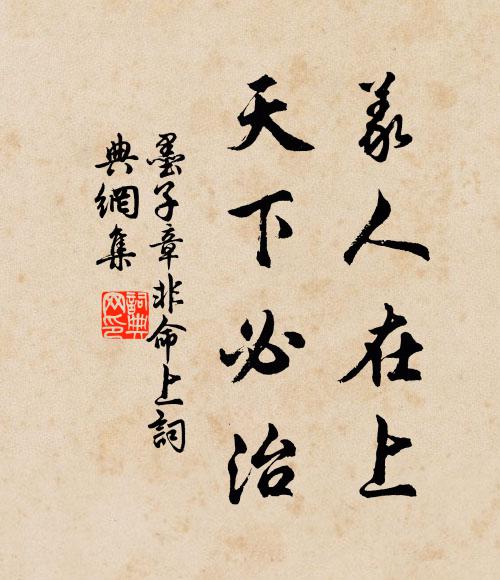 義人在上
天下必治
墨子章非命上詞
典網集
詞典网印